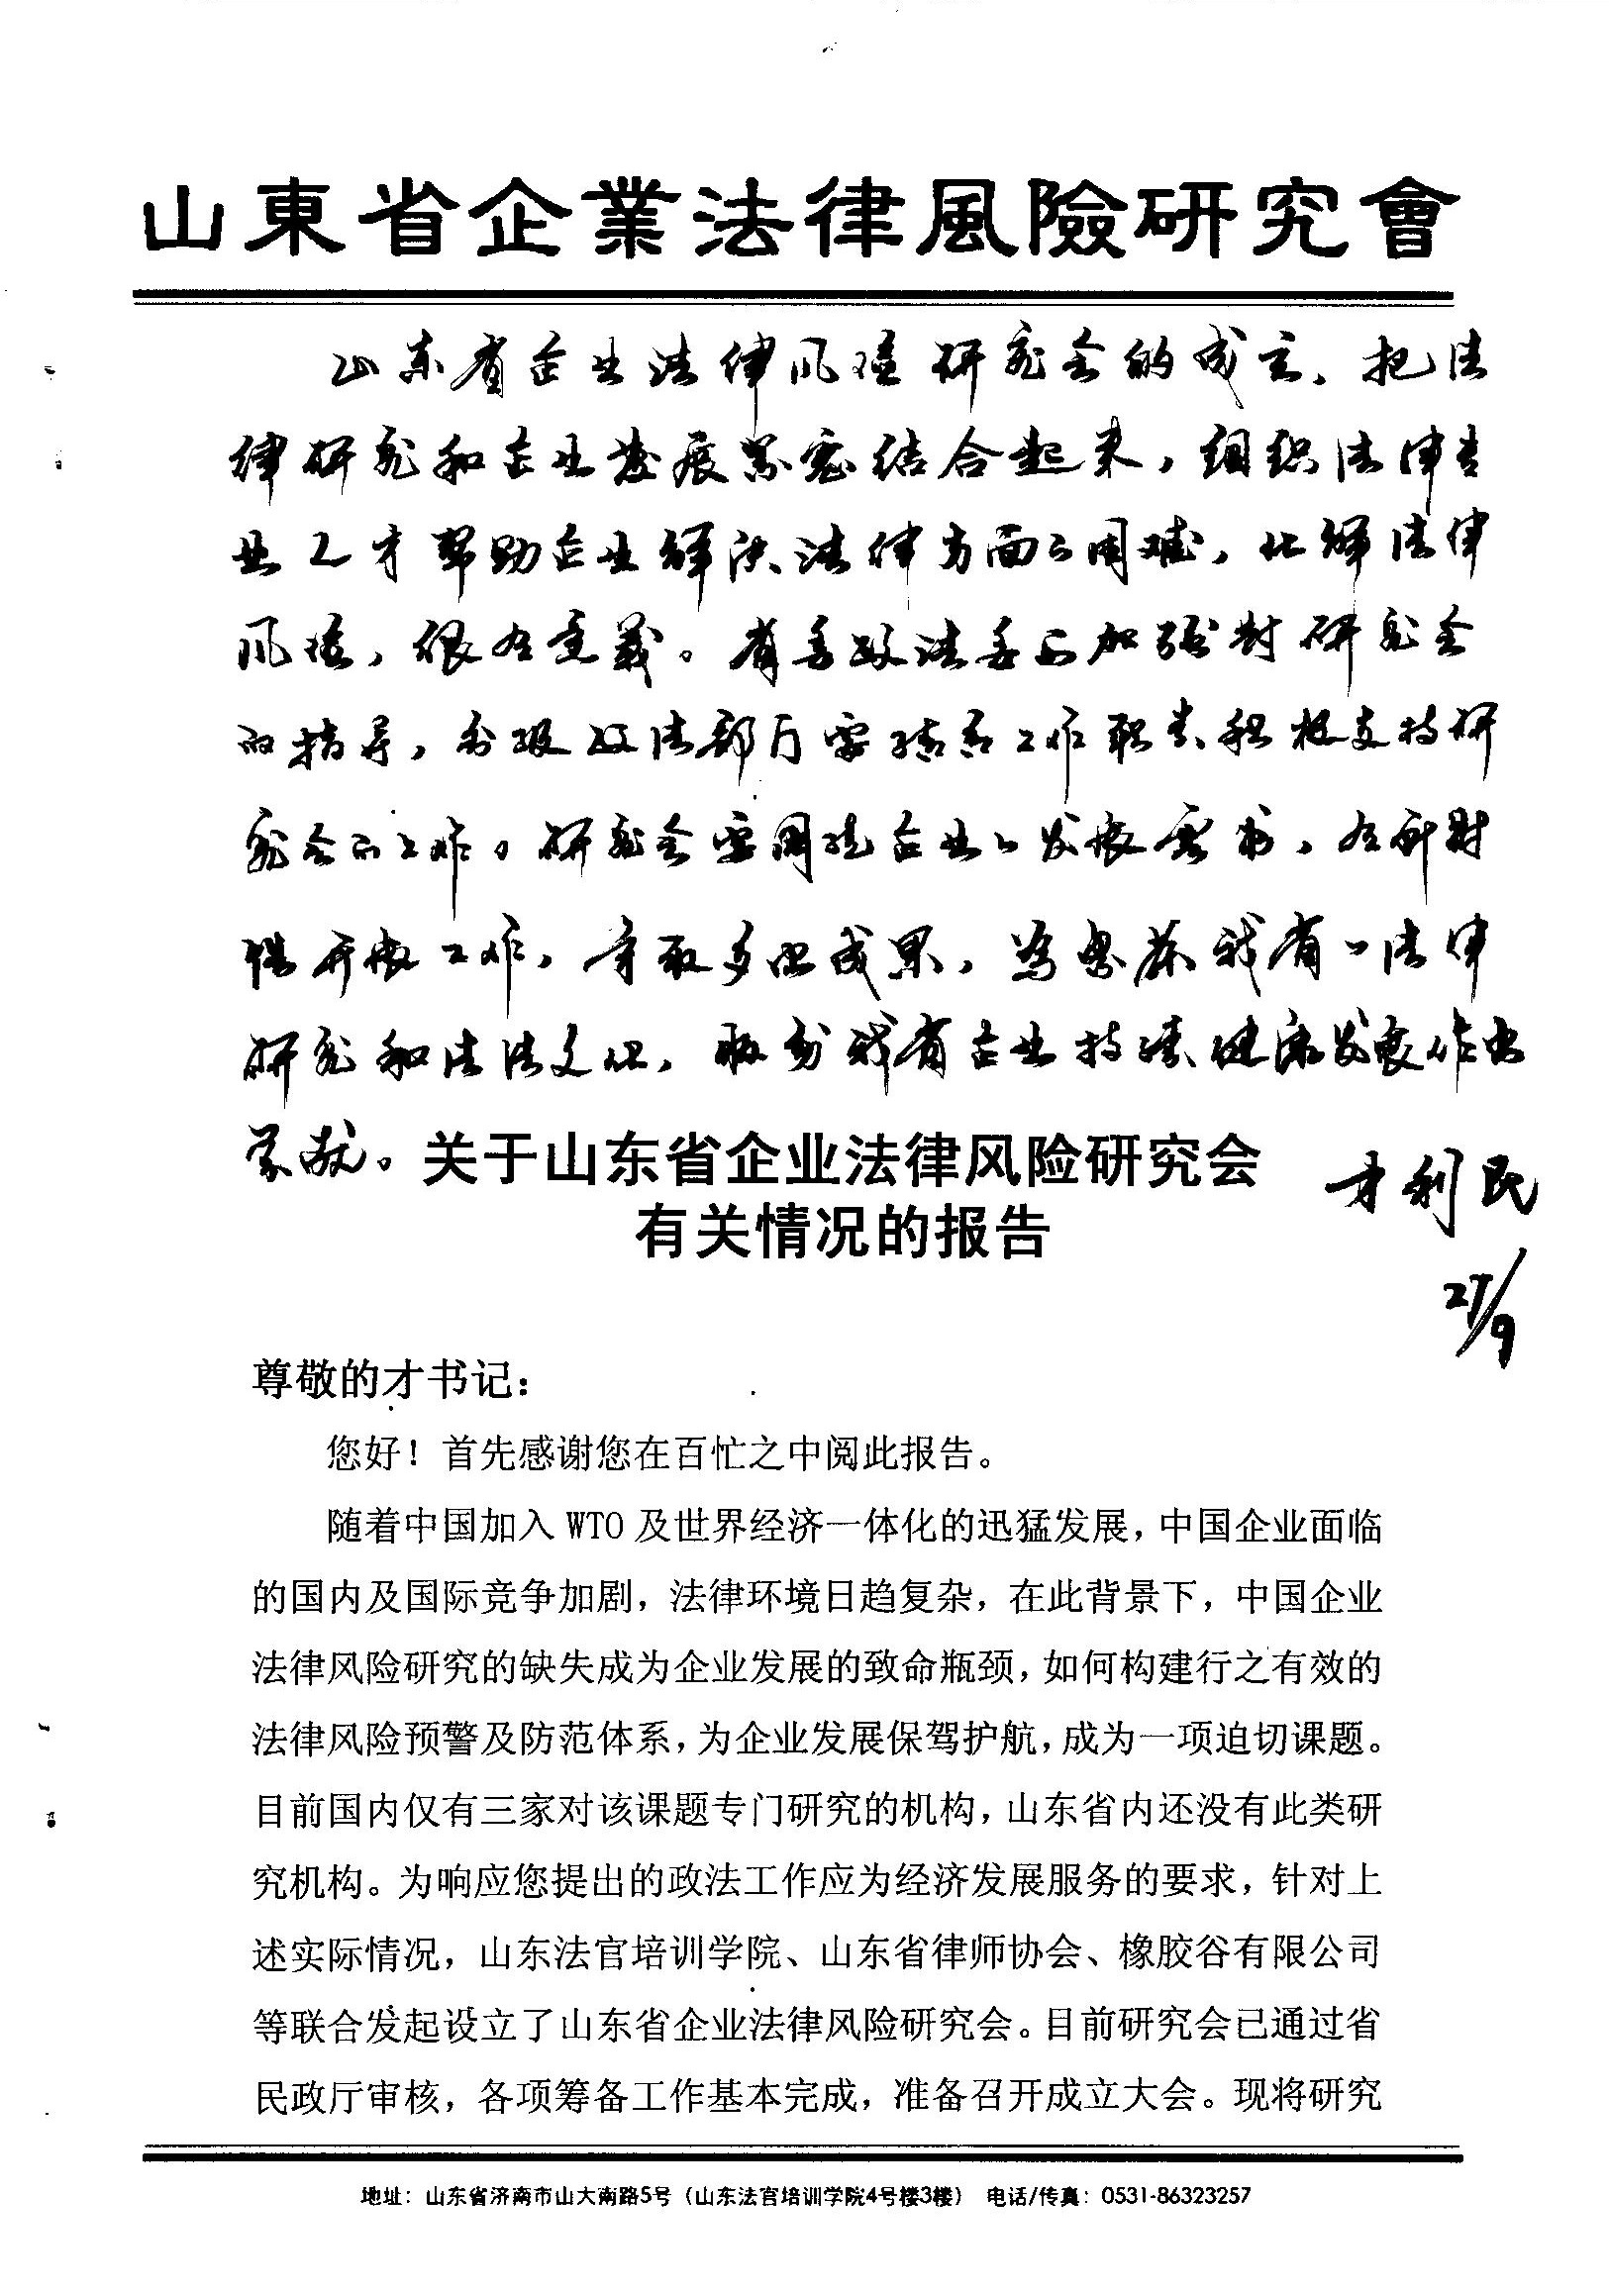 山東省企業法律風險研究會
山东省企业法律风险研究会的成立，把法
律研究和企业发展紧密结合起来，组织法律专
业人才帮助企业解决法律方面的困难，化解法律
风险，很有意义。省委政法委要加强对研究会
的指导，各级政法部门要结合工作职责积极支持研
究会的工作。研究会要围绕企业的发展需求，有针对
性开展工作，争取多出成果，为繁荣我省的法律
研究和法治文化，服务我省企业持续健康发展作出
贡献。
才利民
27/9
关于山东省企业法律风险研究会
有关情况的报告
尊敬的才书记：
您好！首先感谢您在百忙之中阅此报告。
随着中国加入 WTO 及世界经济一体化的迅猛发展，中国企业面临
的国内及国际竞争加剧，法律环境日趋复杂，在此背景下，中国企业
法律风险研究的缺失成为企业发展的致命瓶颈，如何构建行之有效的
法律风险预警及防范体系，为企业发展保驾护航，成为一项迫切课题。
目前国内仅有三家对该课题专门研究的机构，山东省内还没有此类研
究机构。为响应您提出的政法工作应为经济发展服务的要求，针对上
述实际情况，山东法官培训学院、山东省律师协会、橡胶谷有限公司
等联合发起设立了山东省企业法律风险研究会。目前研究会已通过省
民政厅审核，各项筹备工作基本完成，准备召开成立大会。现将研究
地址：山东省济南市山大南路5号（山东法官培训学院4号楼3楼） 电话/传真：0531-86323257